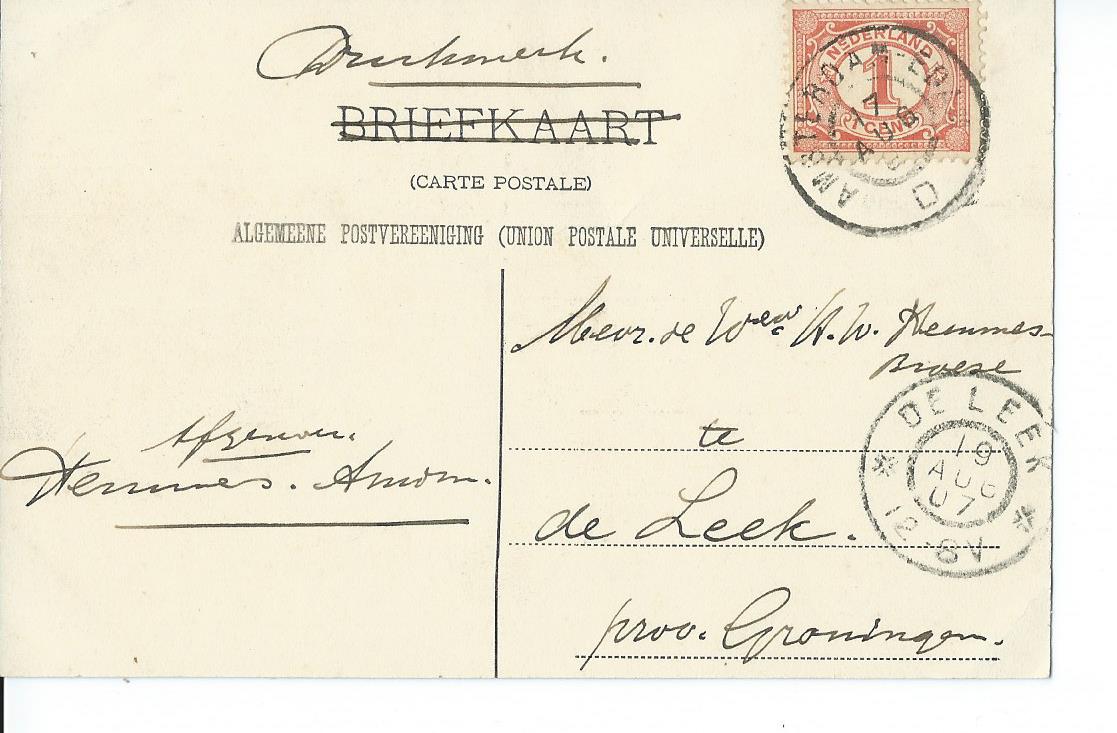 Drukwerk.
BRIEFKAART
(CARTE POSTALE)
ALGEMEENE POSTVEREENIGING (UNION POSTALE UNIVERSELLE)
NEDERLAND
1
CENT
AMSTERDAM-EDE
AUG
D
Mevr. de Wed H. W. Hemmes-
Broese
te
de Leek.
prov. Groningen.
DE LEEK
19
AUG
07
12-8V
Hemmes. Amdm.